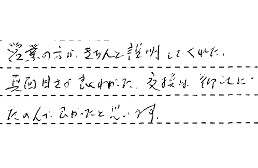 営業の方が、きちんと説明してくれた。
真面目さが良かった。交接は
たのんで良かったと思います。